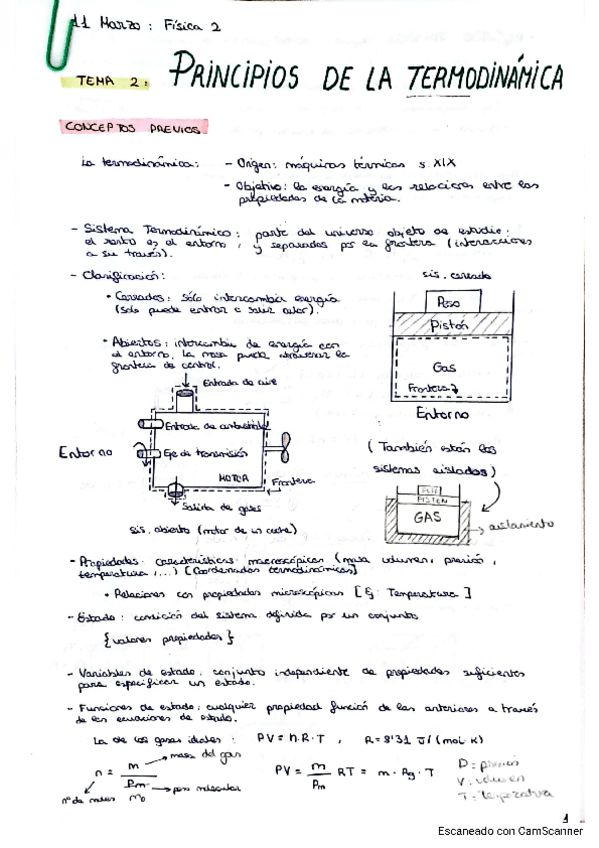 11 Marzo : Física 2
TEMA 2: PRINCIPIOS DE LA TERMODINÁMICA
CONCEPTOS PREVIOS
La termodinámica: - Origen: máquinas térmicas s. XIX
- Objetivo: la energía y las relaciones entre las
propiedades de la materia.
- Sistema Termodinámico: parte del universo objeto de estudio;
el resto es el entorno, y separados por la frontera (interacciones
a su través).
- Clasificación:
• Cerrados: sólo intercambia energía
(solo puede entrar o salir calor).
• Abiertos: intercambio de energía con
el entorno. La masa puede atravesar la
frontera de control.
sis. cerrado
Peso
Pistón
Gas
Frontera
Entorno
Entrada de aire
Entrada de combustible
Eje de transmisión
MOTOR
Entorno
Frontera
Salida de gases
sis. abierto (motor de un coche)
(También están los
sistemas aislados)
PESO
PISTÓN
GAS
aislamiento
- Propiedades: características macroscópicas (masa, volumen, presión,
temperatura, ...) [Coordenadas termodinámicas]
• Relaciones con propiedades microscópicas [Ej: Temperatura]
- Estado: condición del sistema definida por un conjunto
{valores propiedades}
- Variables de estado: conjunto independiente de propiedades suficientes
para especificar un estado.
- Funciones de estado: cualquier propiedad función de las anteriores a través
de las ecuaciones de estado.
La de los gases ideales: PV = n·R·T , R = 8'31 J/(mol·K)
n = m / Pm
masa del gas
peso molecular
nº de moles
PV = m/Pm RT = m·Rg·T
P: presión
V: volumen
T: Temperatura
1
Escaneado con CamScanner